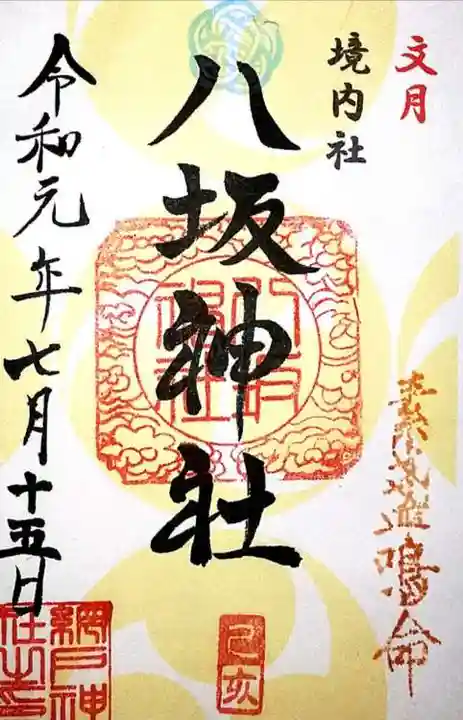 文月
境内社
素戔嗚命
八坂神社
己亥
令和元年七月十五日
網戸神社之印